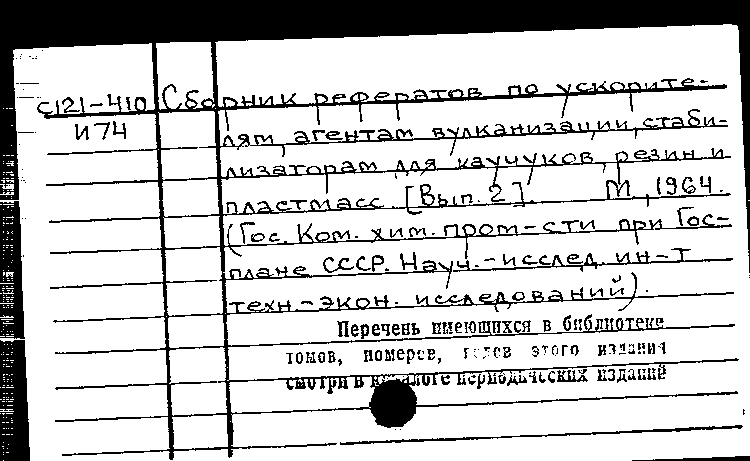 С121-410 Сборник рефератов по ускорите-
И74 лям, агентам вулканизации, стаби-
лизаторам для каучуков, резин и
пластмасс. [Вып. 2]. М., 1964.
(Гос. Ком. хим. пром-сти при Гос-
плане СССР. Науч.-исслед. ин-т
техн.-экон. исследований).
Перечень имеющихся в библиотеке
томов, номеров, годов этого издания
смотри в каталоге периодических изданий